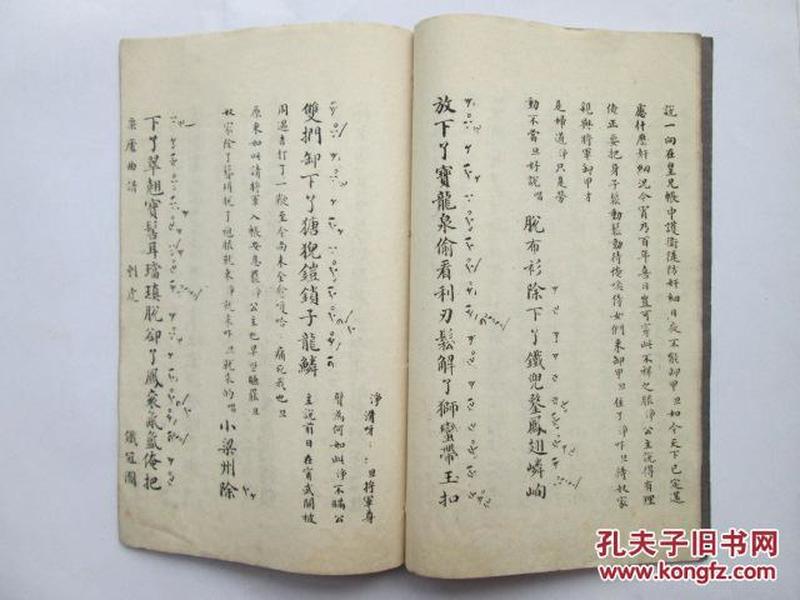 說一向在皇兄帳中護衛隄防奸細日夜不能卸甲旦如今天下已定還
慮什麽奸細况今宵乃百年喜日豈可穿此不祥之服淨公主說得有理
俺正要把身子鬆動鬆動待俺喚侍女們來卸甲旦住了淨吓旦待奴家
親與將軍卸甲者
是婦道淨只是勞
動不當旦好說唱 脫布衫除下了鐵兜鍪鳳翅嶙峋
放下了寶龍泉偷看利刃鬆解了獅蠻帶玉扣
淨 呀 旦將軍尊
臂為何如此淨不瞞公
主說前日在甯武關被
雙捫卸下了猻猊鎧鎖子龍鱗
周遇吉打了一鞭至今尚未全愈嗄哈 痛死我也旦
原來如此請將軍入帳安息罷淨公主也早些睡罷旦
奴家除了簪珥脫了袍服就來淨就來吓旦就來的唱 小梁州除
下了翠翹寶髻耳璫瑱脫卻了鳳裘氤氳俺把
集虛曲譜 刺虎 鐵冠圖
孔夫子旧书网
www.kongfz.com